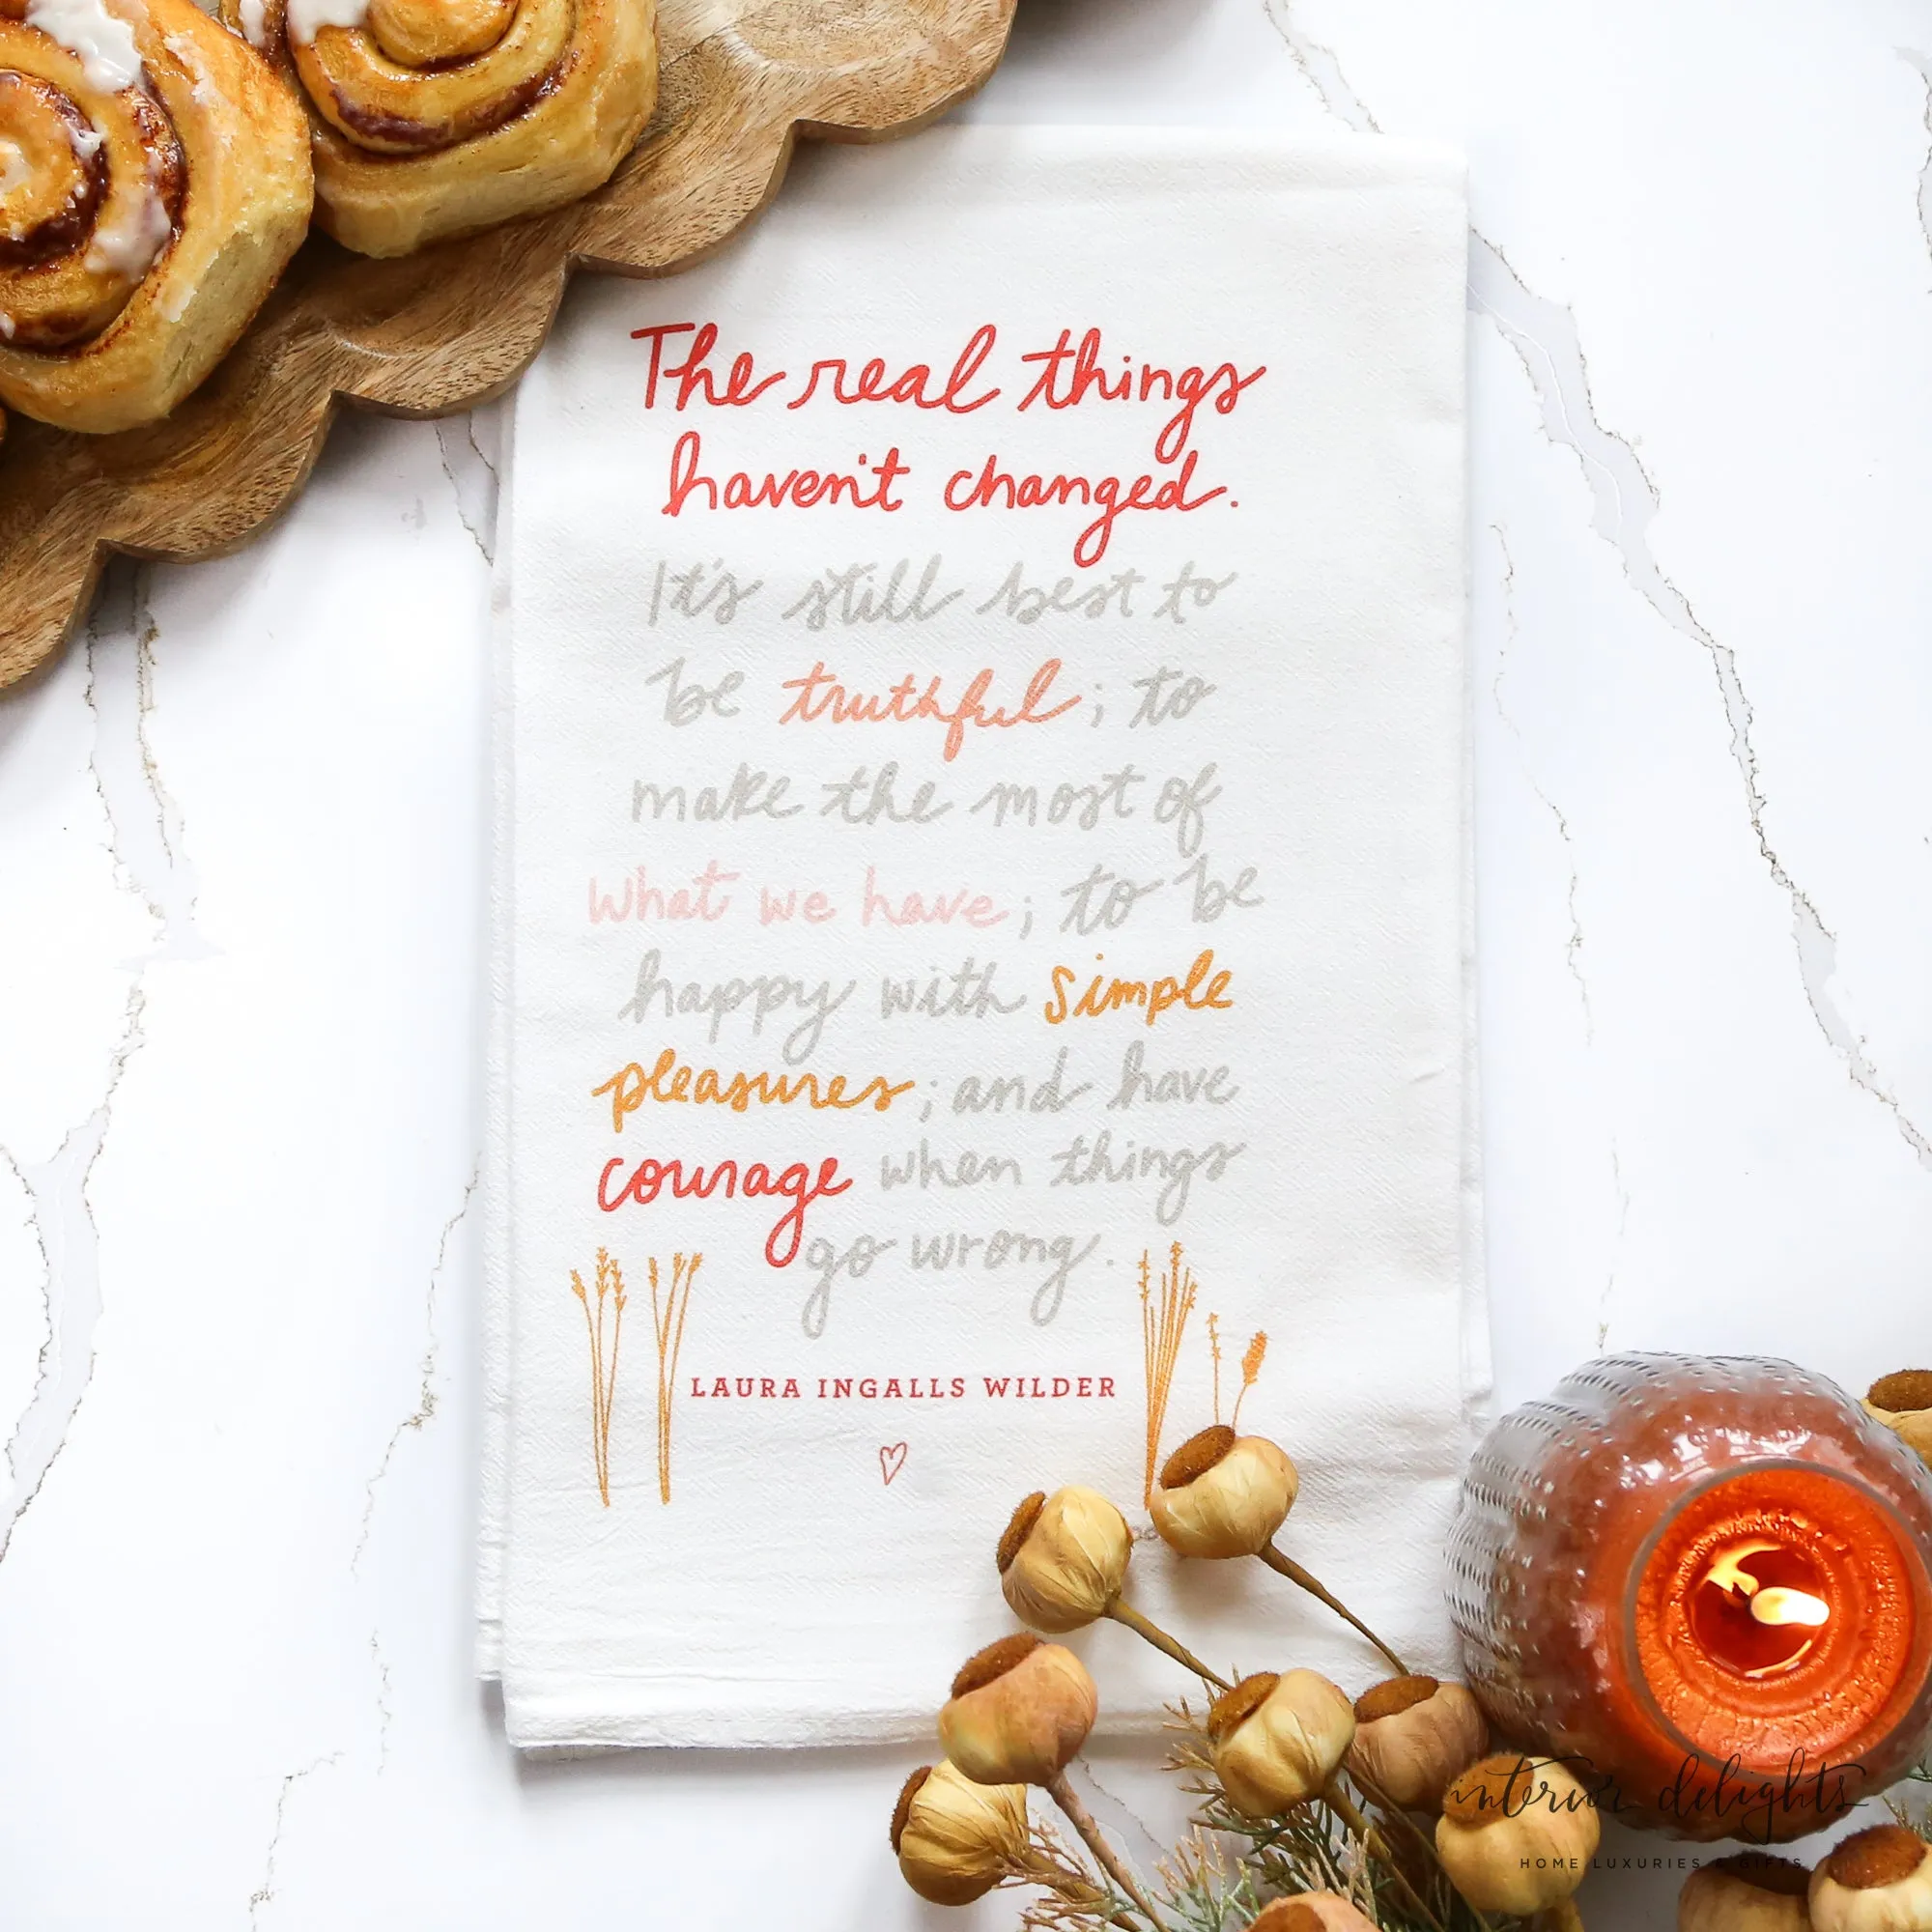 The real things
haven't changed.
It's still best to
be truthful; to
make the most of
what we have; to be
happy with simple
pleasures; and have
courage when things
go wrong.
LAURA INGALLS WILDER
interior delights
HOME LUXURIES & GIFTS